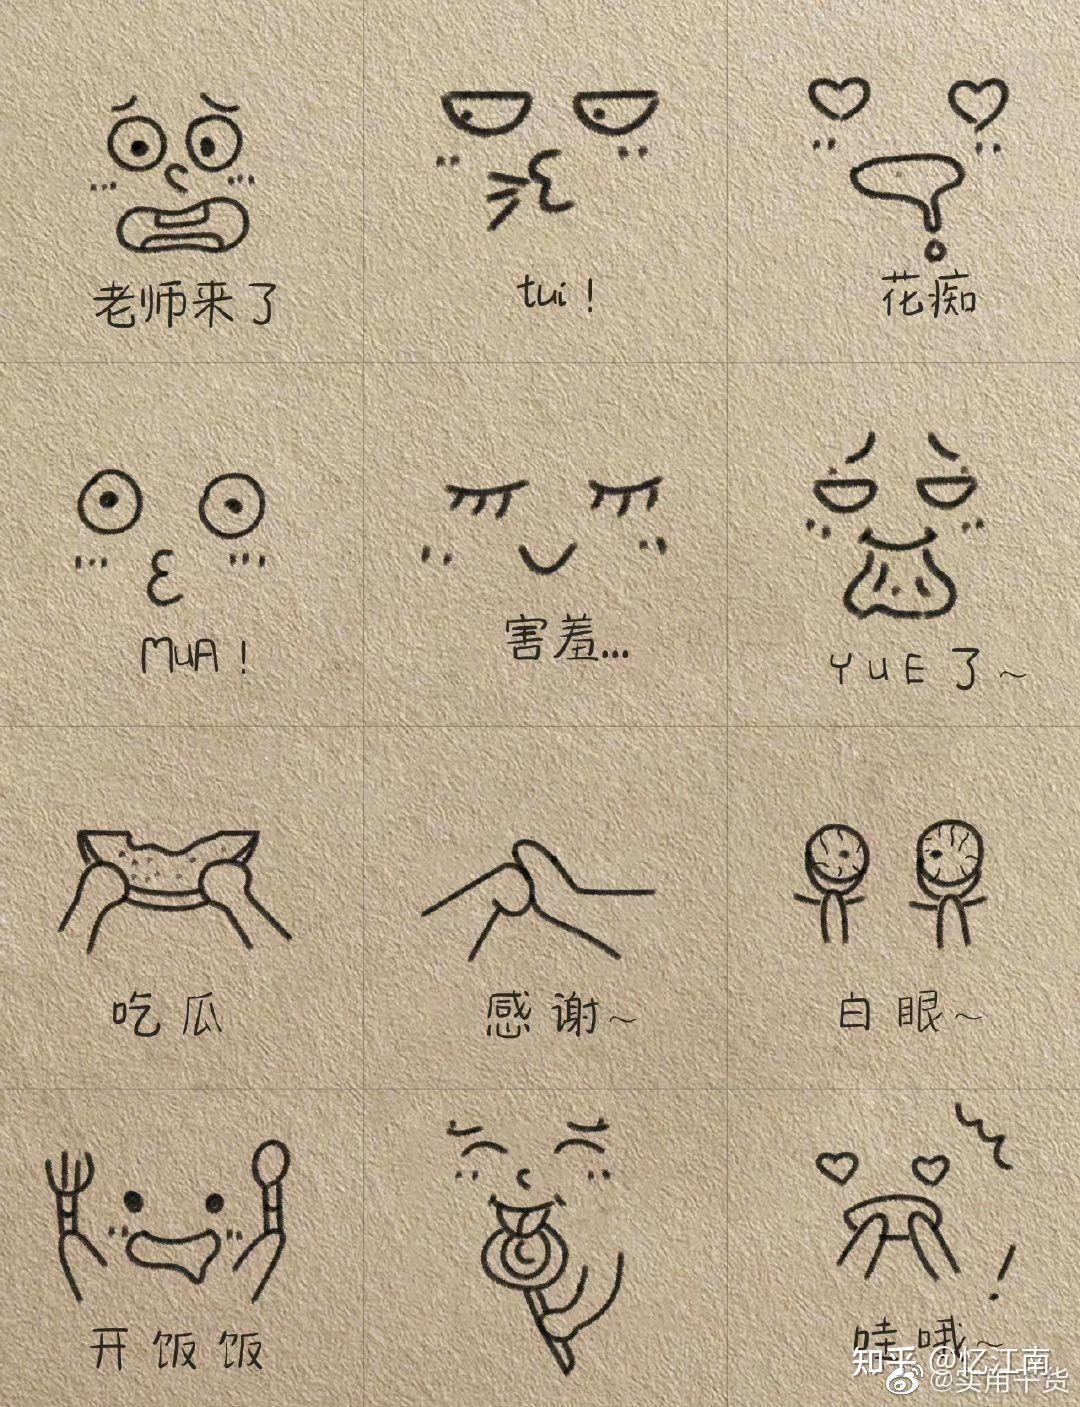 老师来了
tui！
花痴
MUA！
害羞...
YUE了~
吃瓜
感谢~
白眼~
开饭饭
哇哦~
知乎 @忆江南
@实用干货